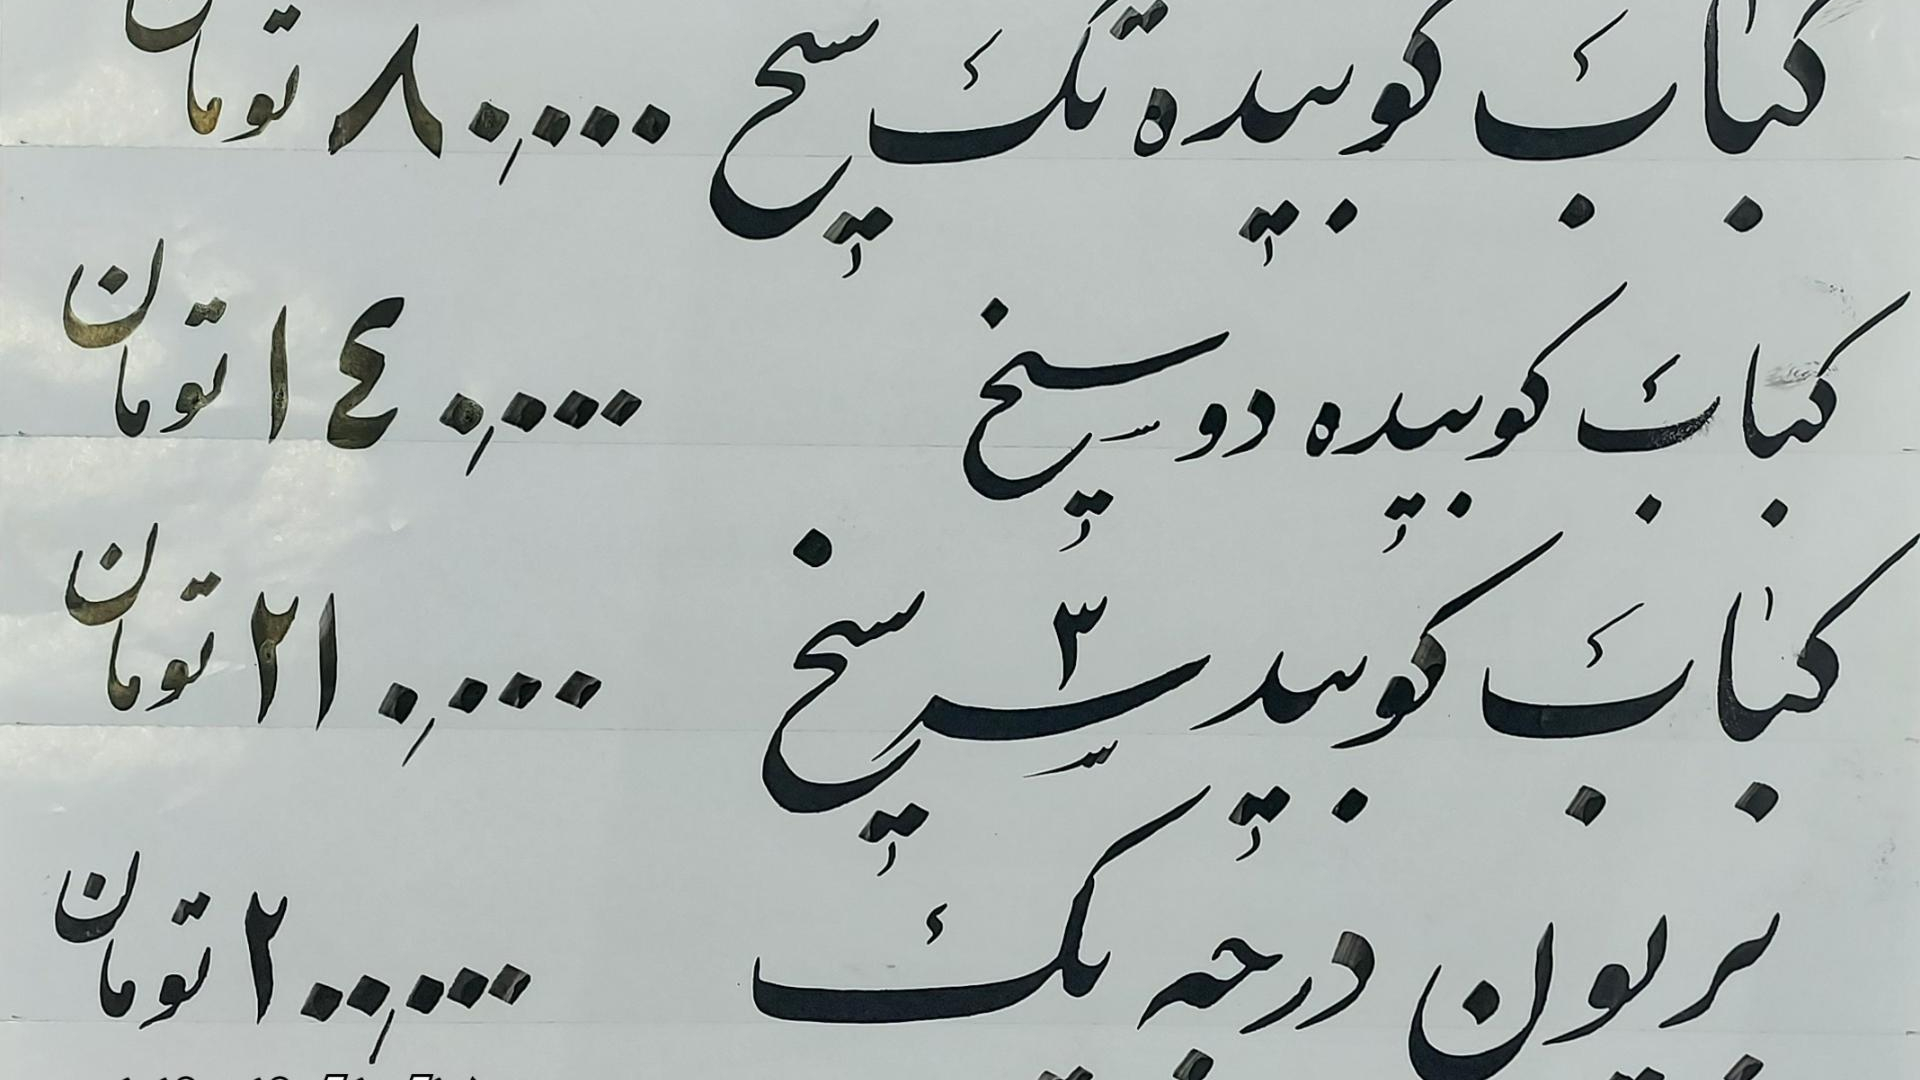 کباب کوبیده تک سیخ ۸۰,۰۰۰ تومان
کباب کوبیده دو سیخ ۱٤۰,۰۰۰ تومان
کباب کوبیده ۳ سیخ ۲۱۰,۰۰۰ تومان
بریون درجه یک ۲۰۰,۰۰۰ تومان